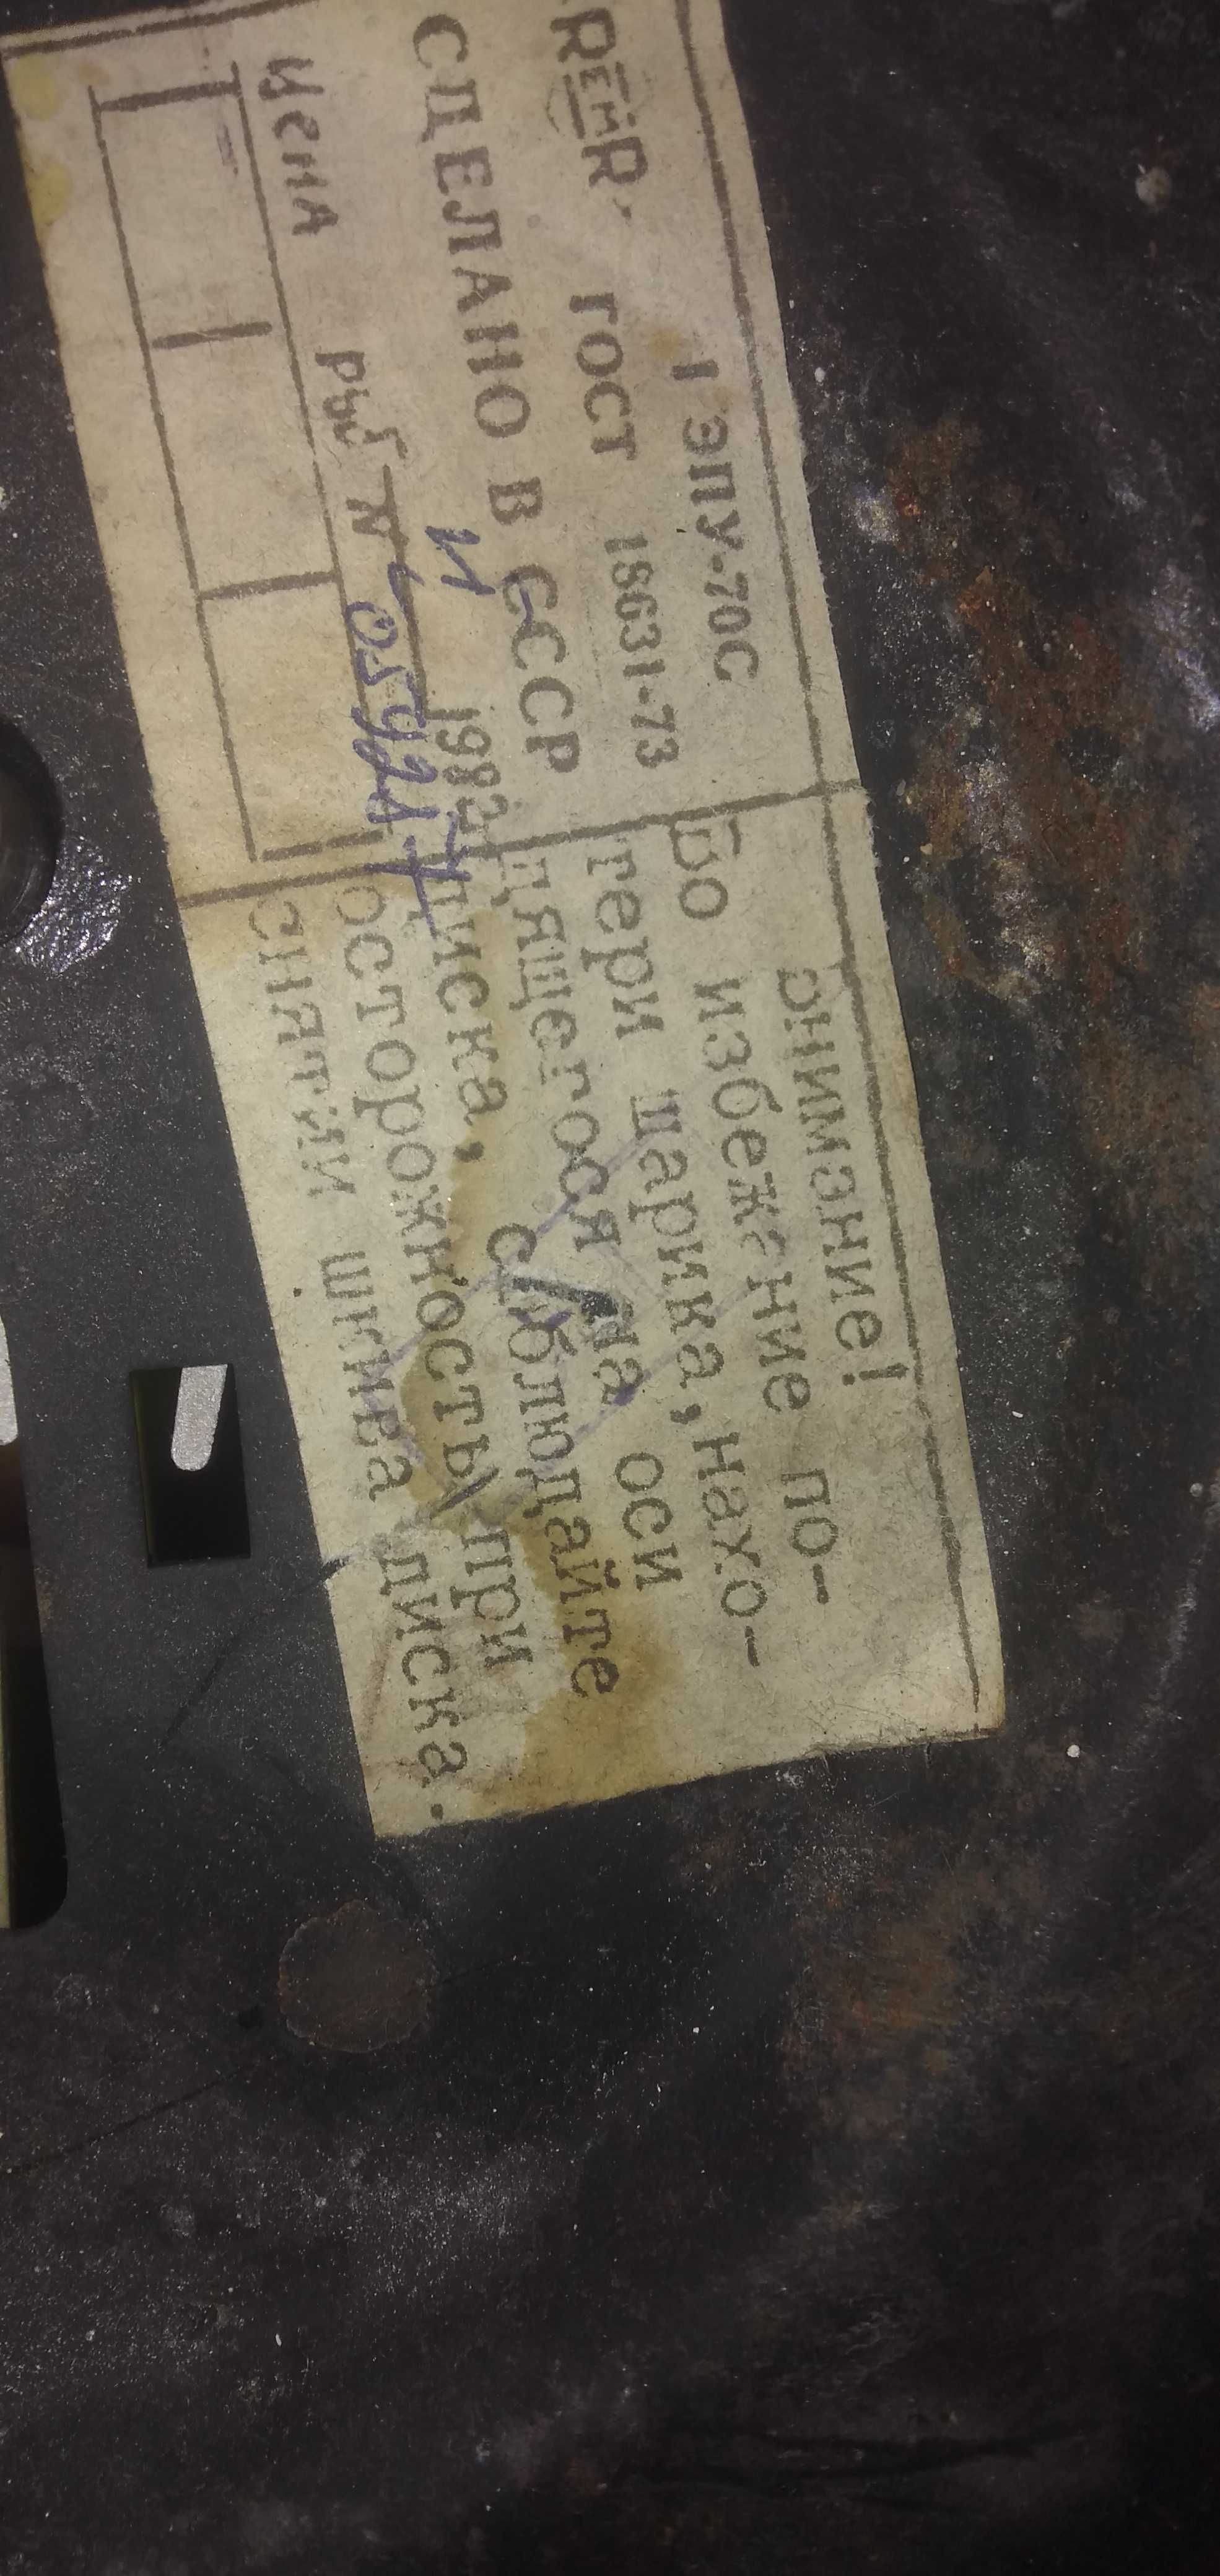 1 ЭПУ-70С
ГОСТ 18631-73
СДЕЛАНО В СССР
1982
цена руб
N 05421
Внимание!
Во избежание по-
тери шарика, нахо-
дящегося на оси
диска, соблюдайте
осторожность при
снятии шкива диска.